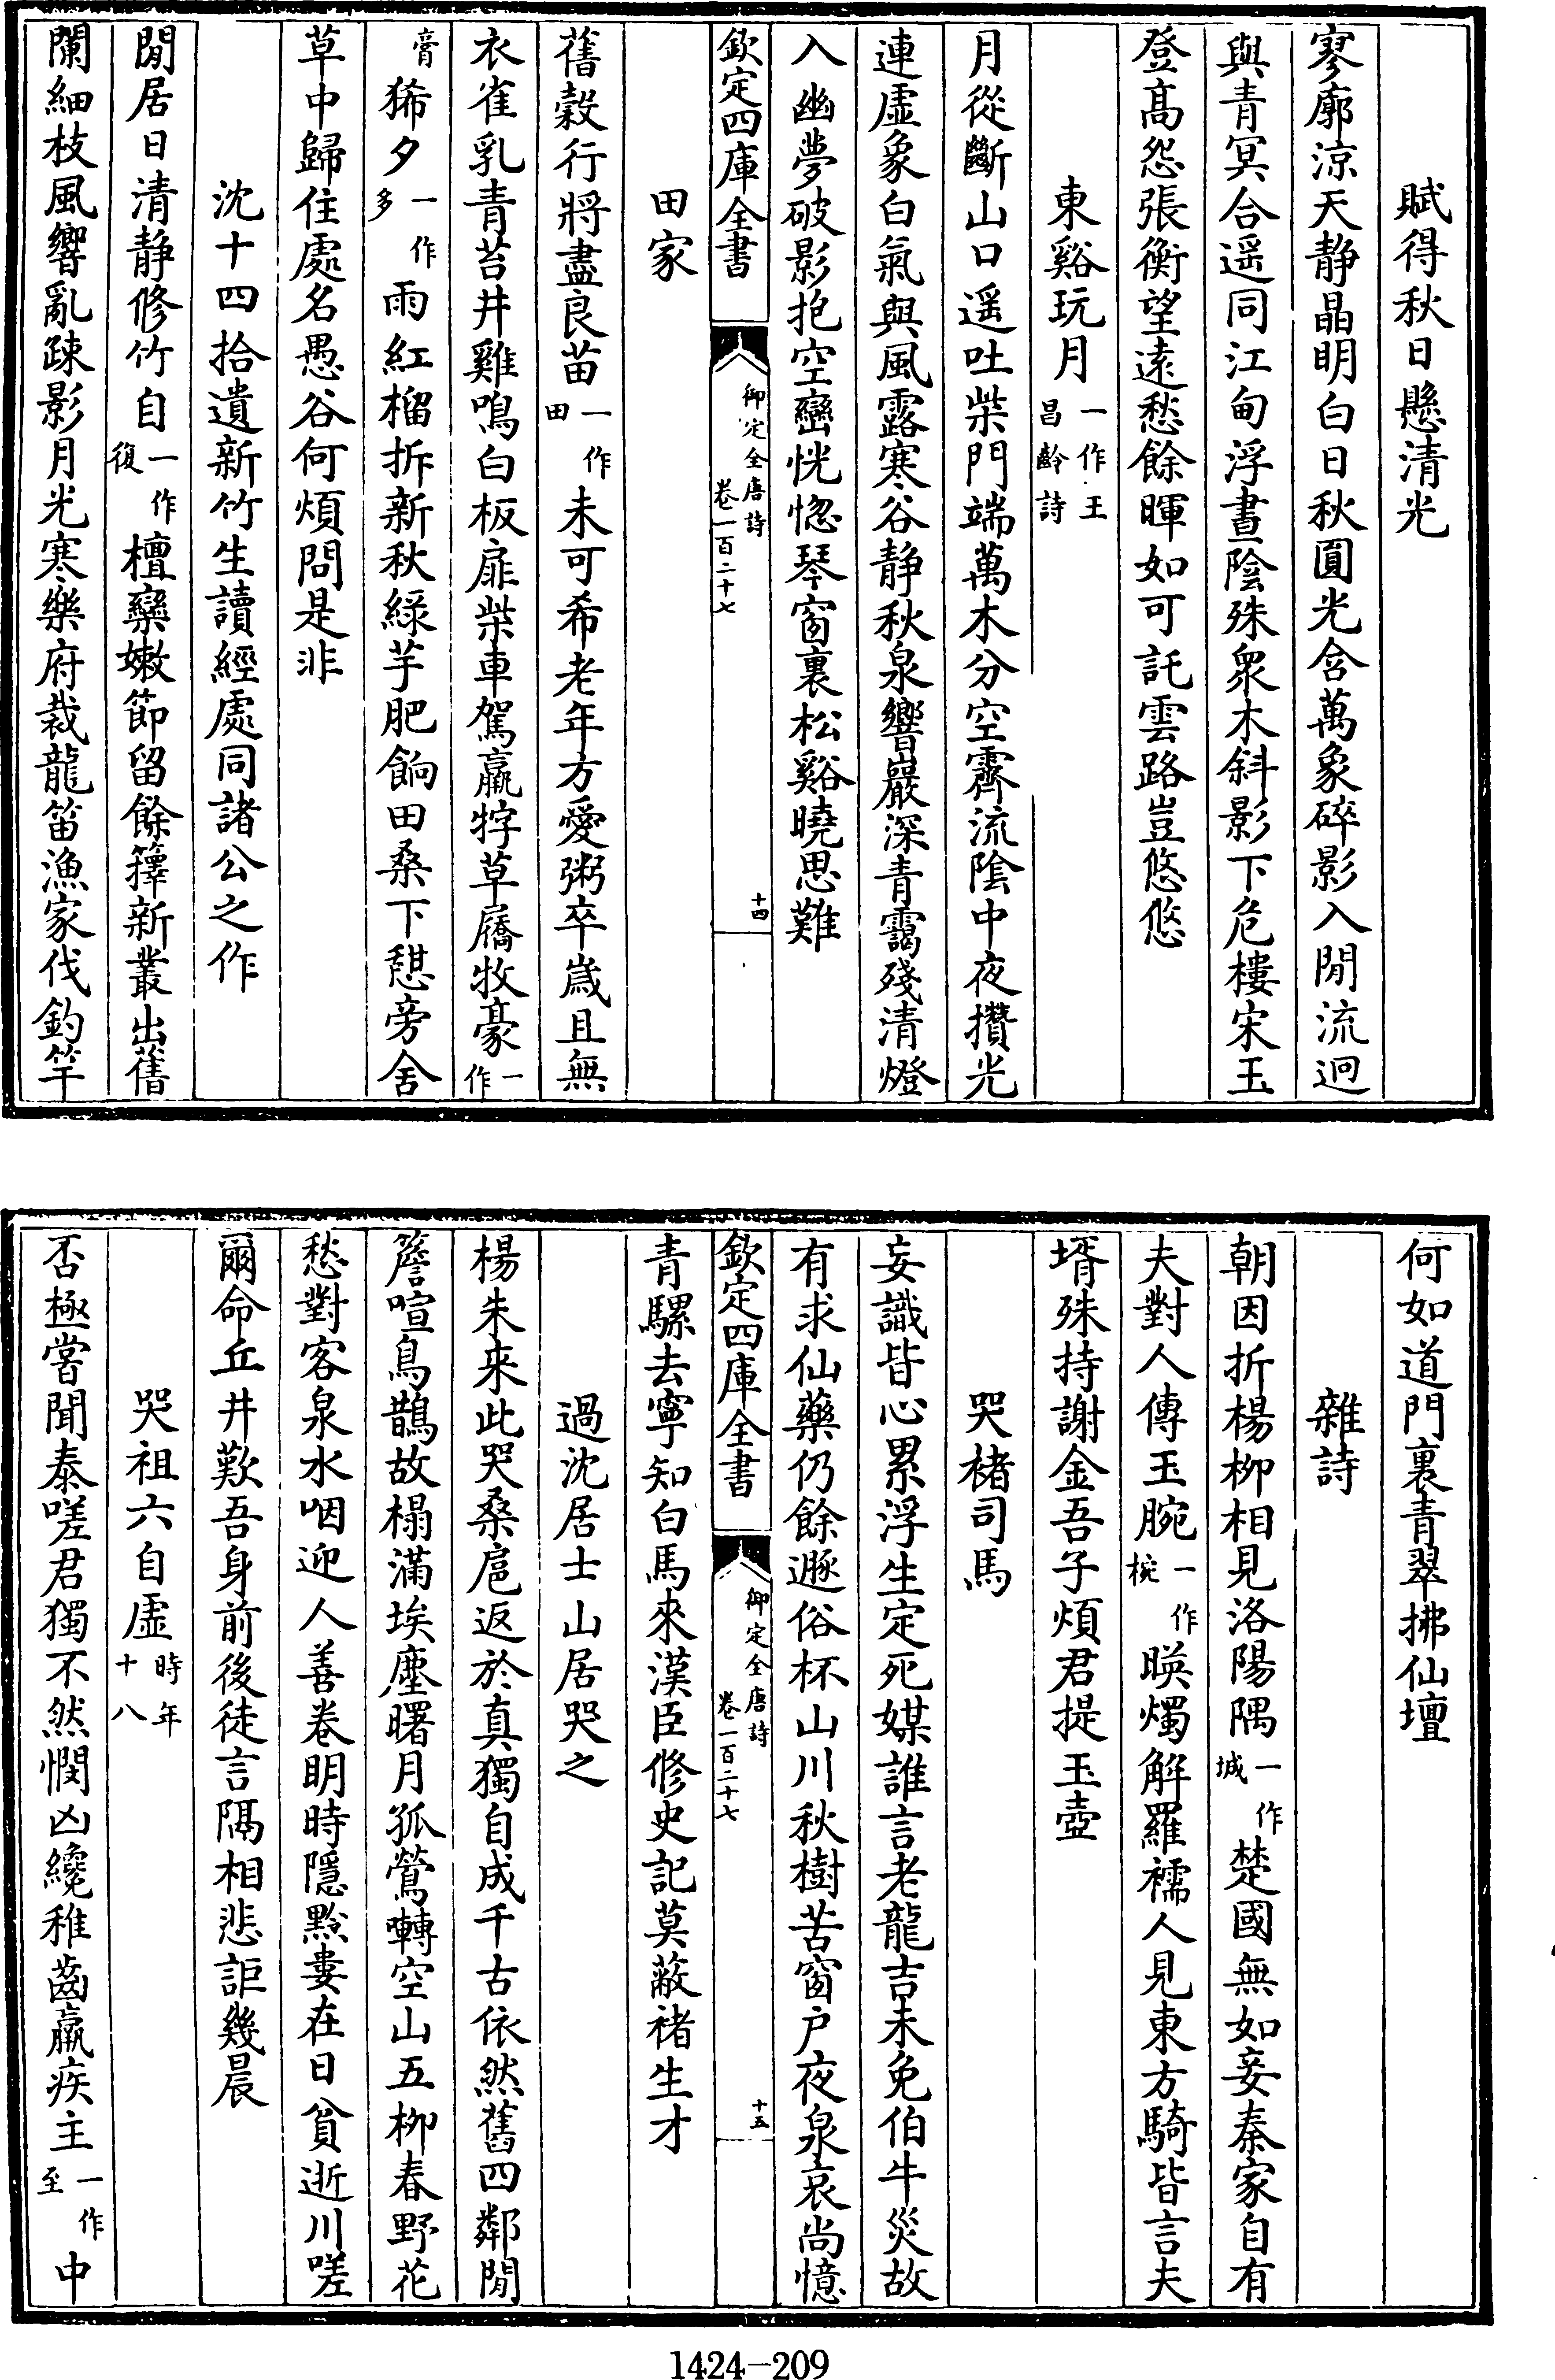 賦得秋日懸清光
寥廓涼天静晶明白日秋圓光含萬象碎影入閒流迥
與青冥合遥同江甸浮晝陰殊衆木斜影下危樓宋玉
登高怨張衡望逺愁餘暉如可託雲路豈悠悠
東谿玩月一作王昌齡詩
月從斷山口遥吐柴門端萬木分空霽流陰中夜攅光
連虚象白氣與風露寒谷静秋泉響巖深青靄殘清燈
入幽夢破影抱空巒恍惚琴窗裏松谿曉思難
欽定四庫全書
御定全唐詩
卷一百二十七
十四
田家
舊穀行將盡良苗一作田未可希老年方愛粥卒嵗且無
衣雀乳青苔井雞鳴白板扉柴車駕羸牸草屩牧豪一作
膏豨夕一作多雨紅榴拆新秋緑芋肥餉田桑下憇旁舍
草中歸住處名愚谷何煩問是非
沈十四拾遺新竹生讀經處同諸公之作
閒居日清静修竹自一作復檀欒嫩節留餘籜新叢出舊
闌細枝風響亂疎影月光寒樂府裁龍笛漁家伐釣竿
何如道門裏青翠拂仙壇
雜詩
朝因折楊柳相見洛陽隅一作城楚國無如妾秦家自有
夫對人傳玉腕一作椀暎燭解羅襦人見東方騎皆言夫
壻殊持謝金吾子煩君提玉壺
哭禇司馬
妄識皆心累浮生定死媒誰言老龍吉未免伯牛災故
有求仙藥仍餘遯俗杯山川秋樹苦窗户夜泉哀尚憶
青騾去寧知白馬來漢臣修史記莫蔽禇生才
欽定四庫全書
御定全唐詩
卷一百二十七
十五
過沈居士山居哭之
楊朱來此哭桑扈返於真獨自成千古依然舊四鄰閒
簷喧鳥鵲故榻滿埃塵曙月孤鶯囀空山五柳春野花
愁對客泉水咽迎人善卷明時隱黔婁在日貧逝川嗟
爾命丘井歎吾身前後徒言隔相悲詎幾晨
哭祖六自虚時年十八
否極嘗聞泰嗟君獨不然憫凶纔稚齒羸疾主一作至中
1424-209